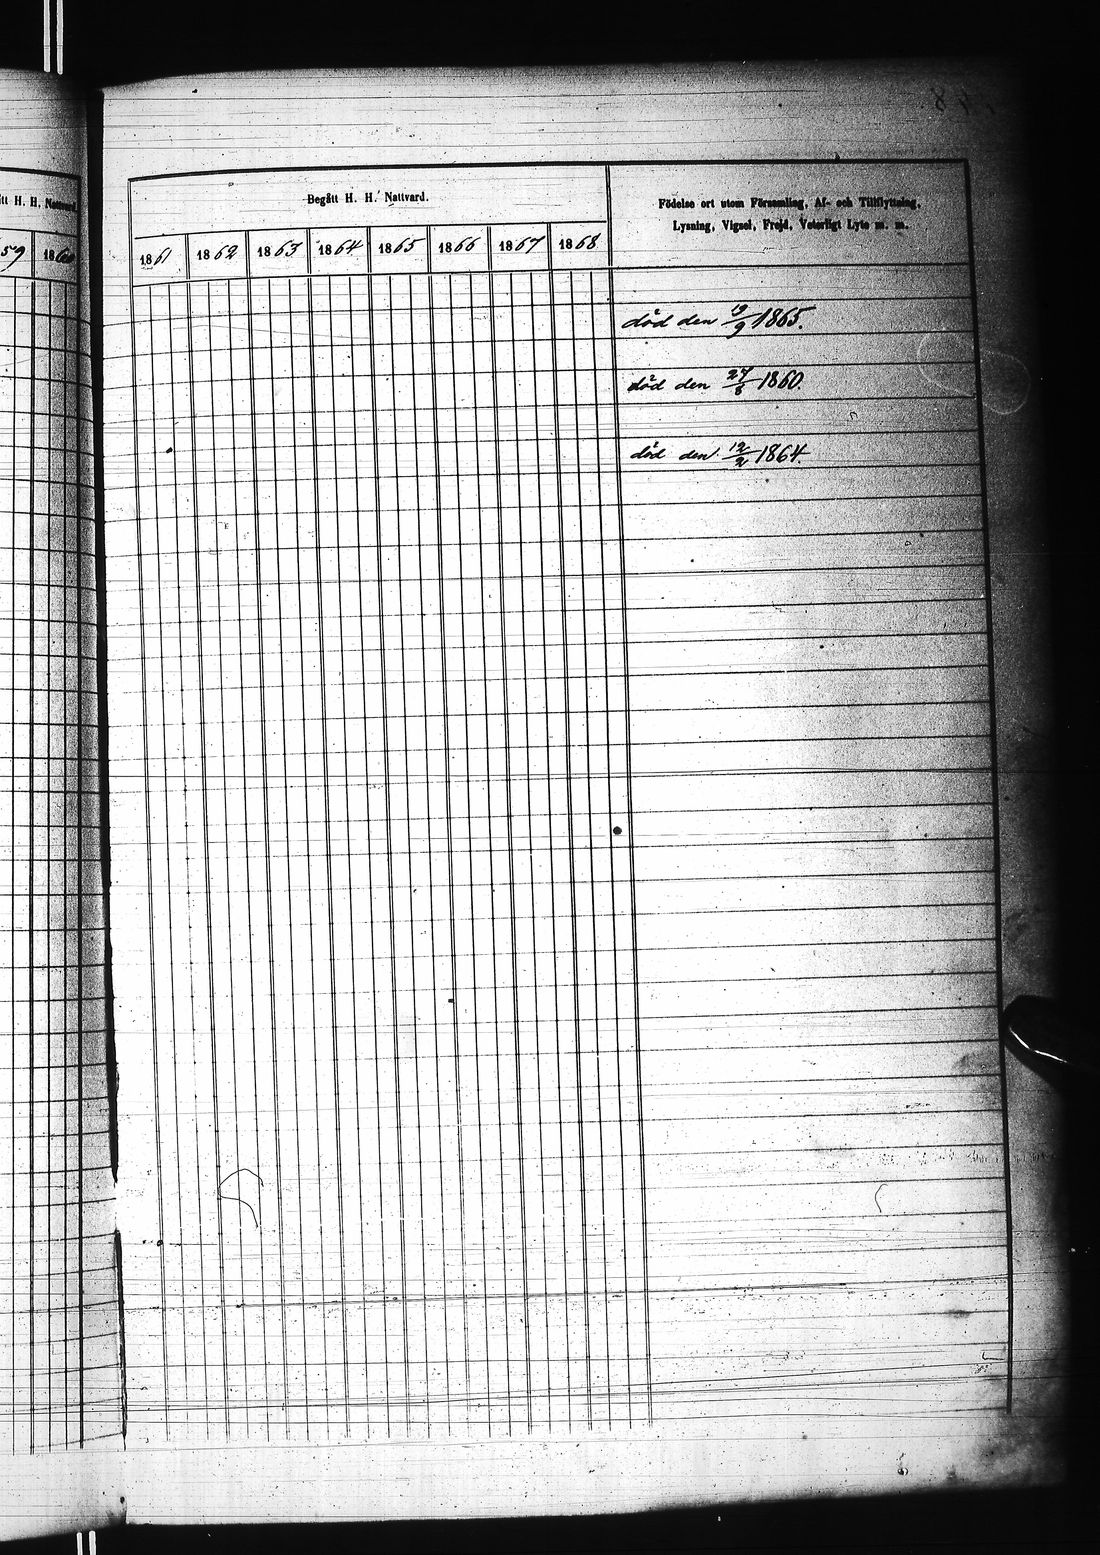 H. H. Nattvard.
59 1860
Begått H. H. Nattvard.
Födelse ort utom Församling, Af- och Tillflyttning,
Lysning, Vigsel, Frejd, Veterligt Lyte m. m.
1861 1862 1863 1864 1865 1866 1867 1868
död den 19/9 1865.
död den 24/8 1860.
död den 12/2 1864.